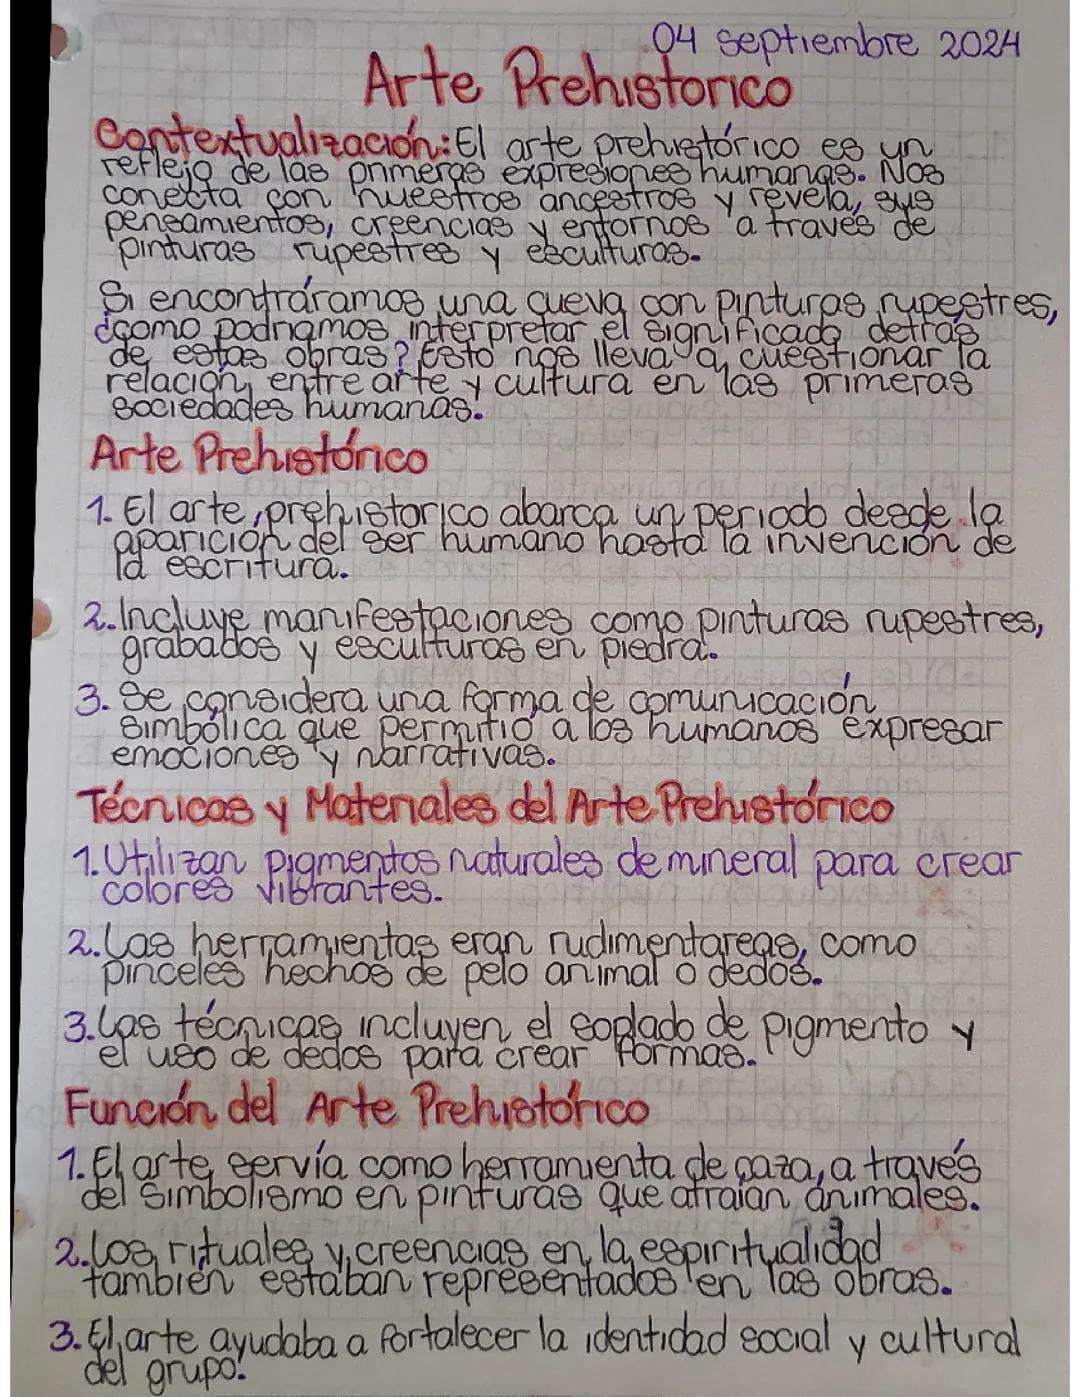 04 septiembre 2024
Arte Prehistorico
Contextualización: El arte prehistórico es un
reflejo de las primeras expresiones humanas. Nos
conecta con nuestros ancestros y revela, sus
pensamientos, creencias y entornos a través de
pinturas rupestres y esculturas.
Si encontráramos una cueva con pinturas rupestres,
¿como podriamos interpretar el significado detrás
de estas obras? Esto nos lleva a cuestionar la
relación entre arte y cultura en las primeras
sociedades humanas.
Arte Prehistórico
1. El arte prehistorico abarca un periodo desde la
aparición del ser humano hasta la invención de
la escritura.
2. Incluye manifestaciones como pinturas rupestres,
grabados y esculturas en piedra.
3. Se considera una forma de comunicación
simbólica que permitió a los humanos expresar
emociones y narrativas.
Técnicas y Materiales del Arte Prehistórico
1. Utilizan pigmentos naturales de mineral para crear
colores vibrantes.
2. Las herramientas eran rudimentareas, como
pinceles hechos de pelo animal o dedos.
3. Las técnicas incluyen el soplado de pigmento y
el uso de dedos para crear formas.
Función del Arte Prehistórico
1. El arte servía como herramienta de caza, a través
del simbolismo en pinturas que atraían animales.
2. Los rituales y creencias en la espiritualidad
también estaban representados en las obras.
3. El arte ayudaba a fortalecer la identidad social y cultural
del grupo.